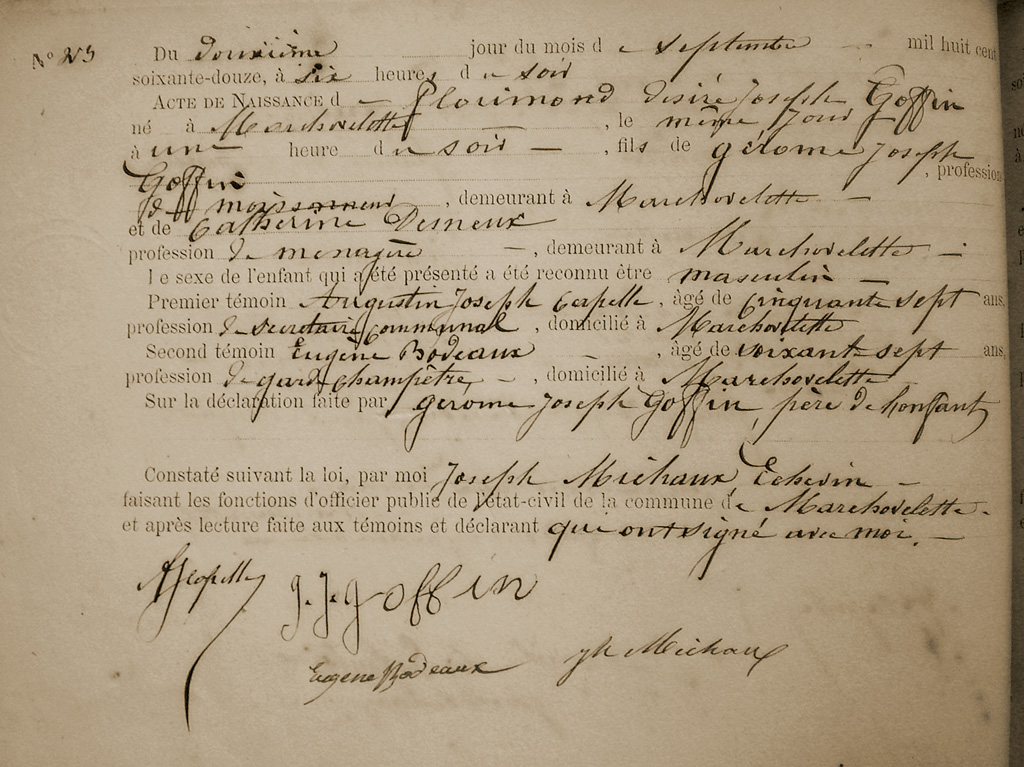 N° 23 Du douzième jour du mois de septembre mil huit cent
soixante-douze, à six heures du soir
ACTE DE NAISSANCE de Florimond Désiré Joseph Goffin
né à Marchovelette, le même jour
à une heure du soir, fils de gérome Joseph
Goffin, profession
de moissonneur, demeurant à Marchovelette
et de Catherine Demeux
profession de menagère, demeurant à Marchovelette
Le sexe de l'enfant qui a été présenté a été reconnu être masculin
Premier témoin Augustin Joseph Capelle, âgé de cinquante sept ans,
profession de secrétaire communal, domicilié à Marchovelette
Second témoin Eugène Bodeaux, âgé de soixante sept ans,
profession de garde champêtre, domicilié à Marchovelette
Sur la déclaration faite par gerome Joseph Goffin, père de l'enfant
Constaté suivant la loi, par moi Joseph Michaux, Echevin
faisant les fonctions d'officier public de l'état-civil de la commune de Marchovelette
et après lecture faite aux témoins et déclarant que ont signé avec moi.
J. J. Goffin
Eugene Bodeaux
Jh Michaux